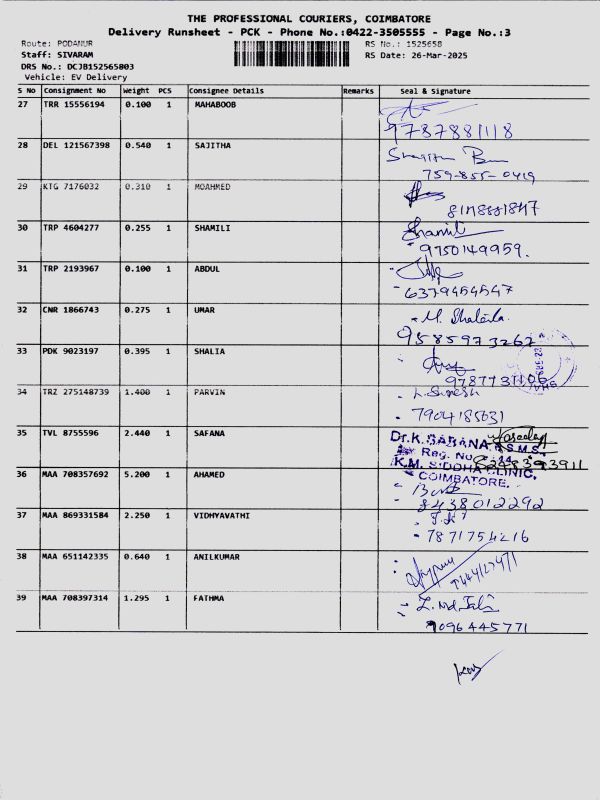 THE PROFESSIONAL COURIERS, COIMBATORE
Delivery Runsheet - PCK - Phone No.:0422-3505555 - Page No.:3
Route: PODANUR RS No.: 1525658
Staff: SIVARAM RS Date: 26-Mar-2025
DRS No.: DCJB152565803
Vehicle: EV Delivery
S No Consignment No Weight PCS Consignee Details Remarks Seal & Signature
27 TRR 15556194 0.100 1 MAHABOOB
9787881118
28 DEL 121567398 0.540 1 SAJITHA
759-855-0419
29 KTG 7176032 0.310 1 MOAHMED
30 TRP 4604277 0.255 1 SHAMILI
Shamili
9750149959.
31 TRP 2193967 0.100 1 ABDUL
6379454547
32 CNR 1866743 0.275 1 UMAR
9585973267
33 PDK 9023197 0.395 1 SHALIA
9787731106
34 TRZ 275148739 1.400 1 PARVIN
L. Suresh
- 7904185631
35 TVL 8755596 2.440 1 SAFANA
Dr.K. SABANA B.S.M.S.
Reg. No
8248393911
K.M. SIDDHA CLINIC,
COIMBATORE.
36 MAA 708357692 5.200 1 AHAMED
- 8438012292
37 MAA 869331584 2.250 1 VIDHYAVATHI
- 7871754216
38 MAA 651142335 0.640 1 ANILKUMAR
39 MAA 708397314 1.295 1 FATHMA
9096445771